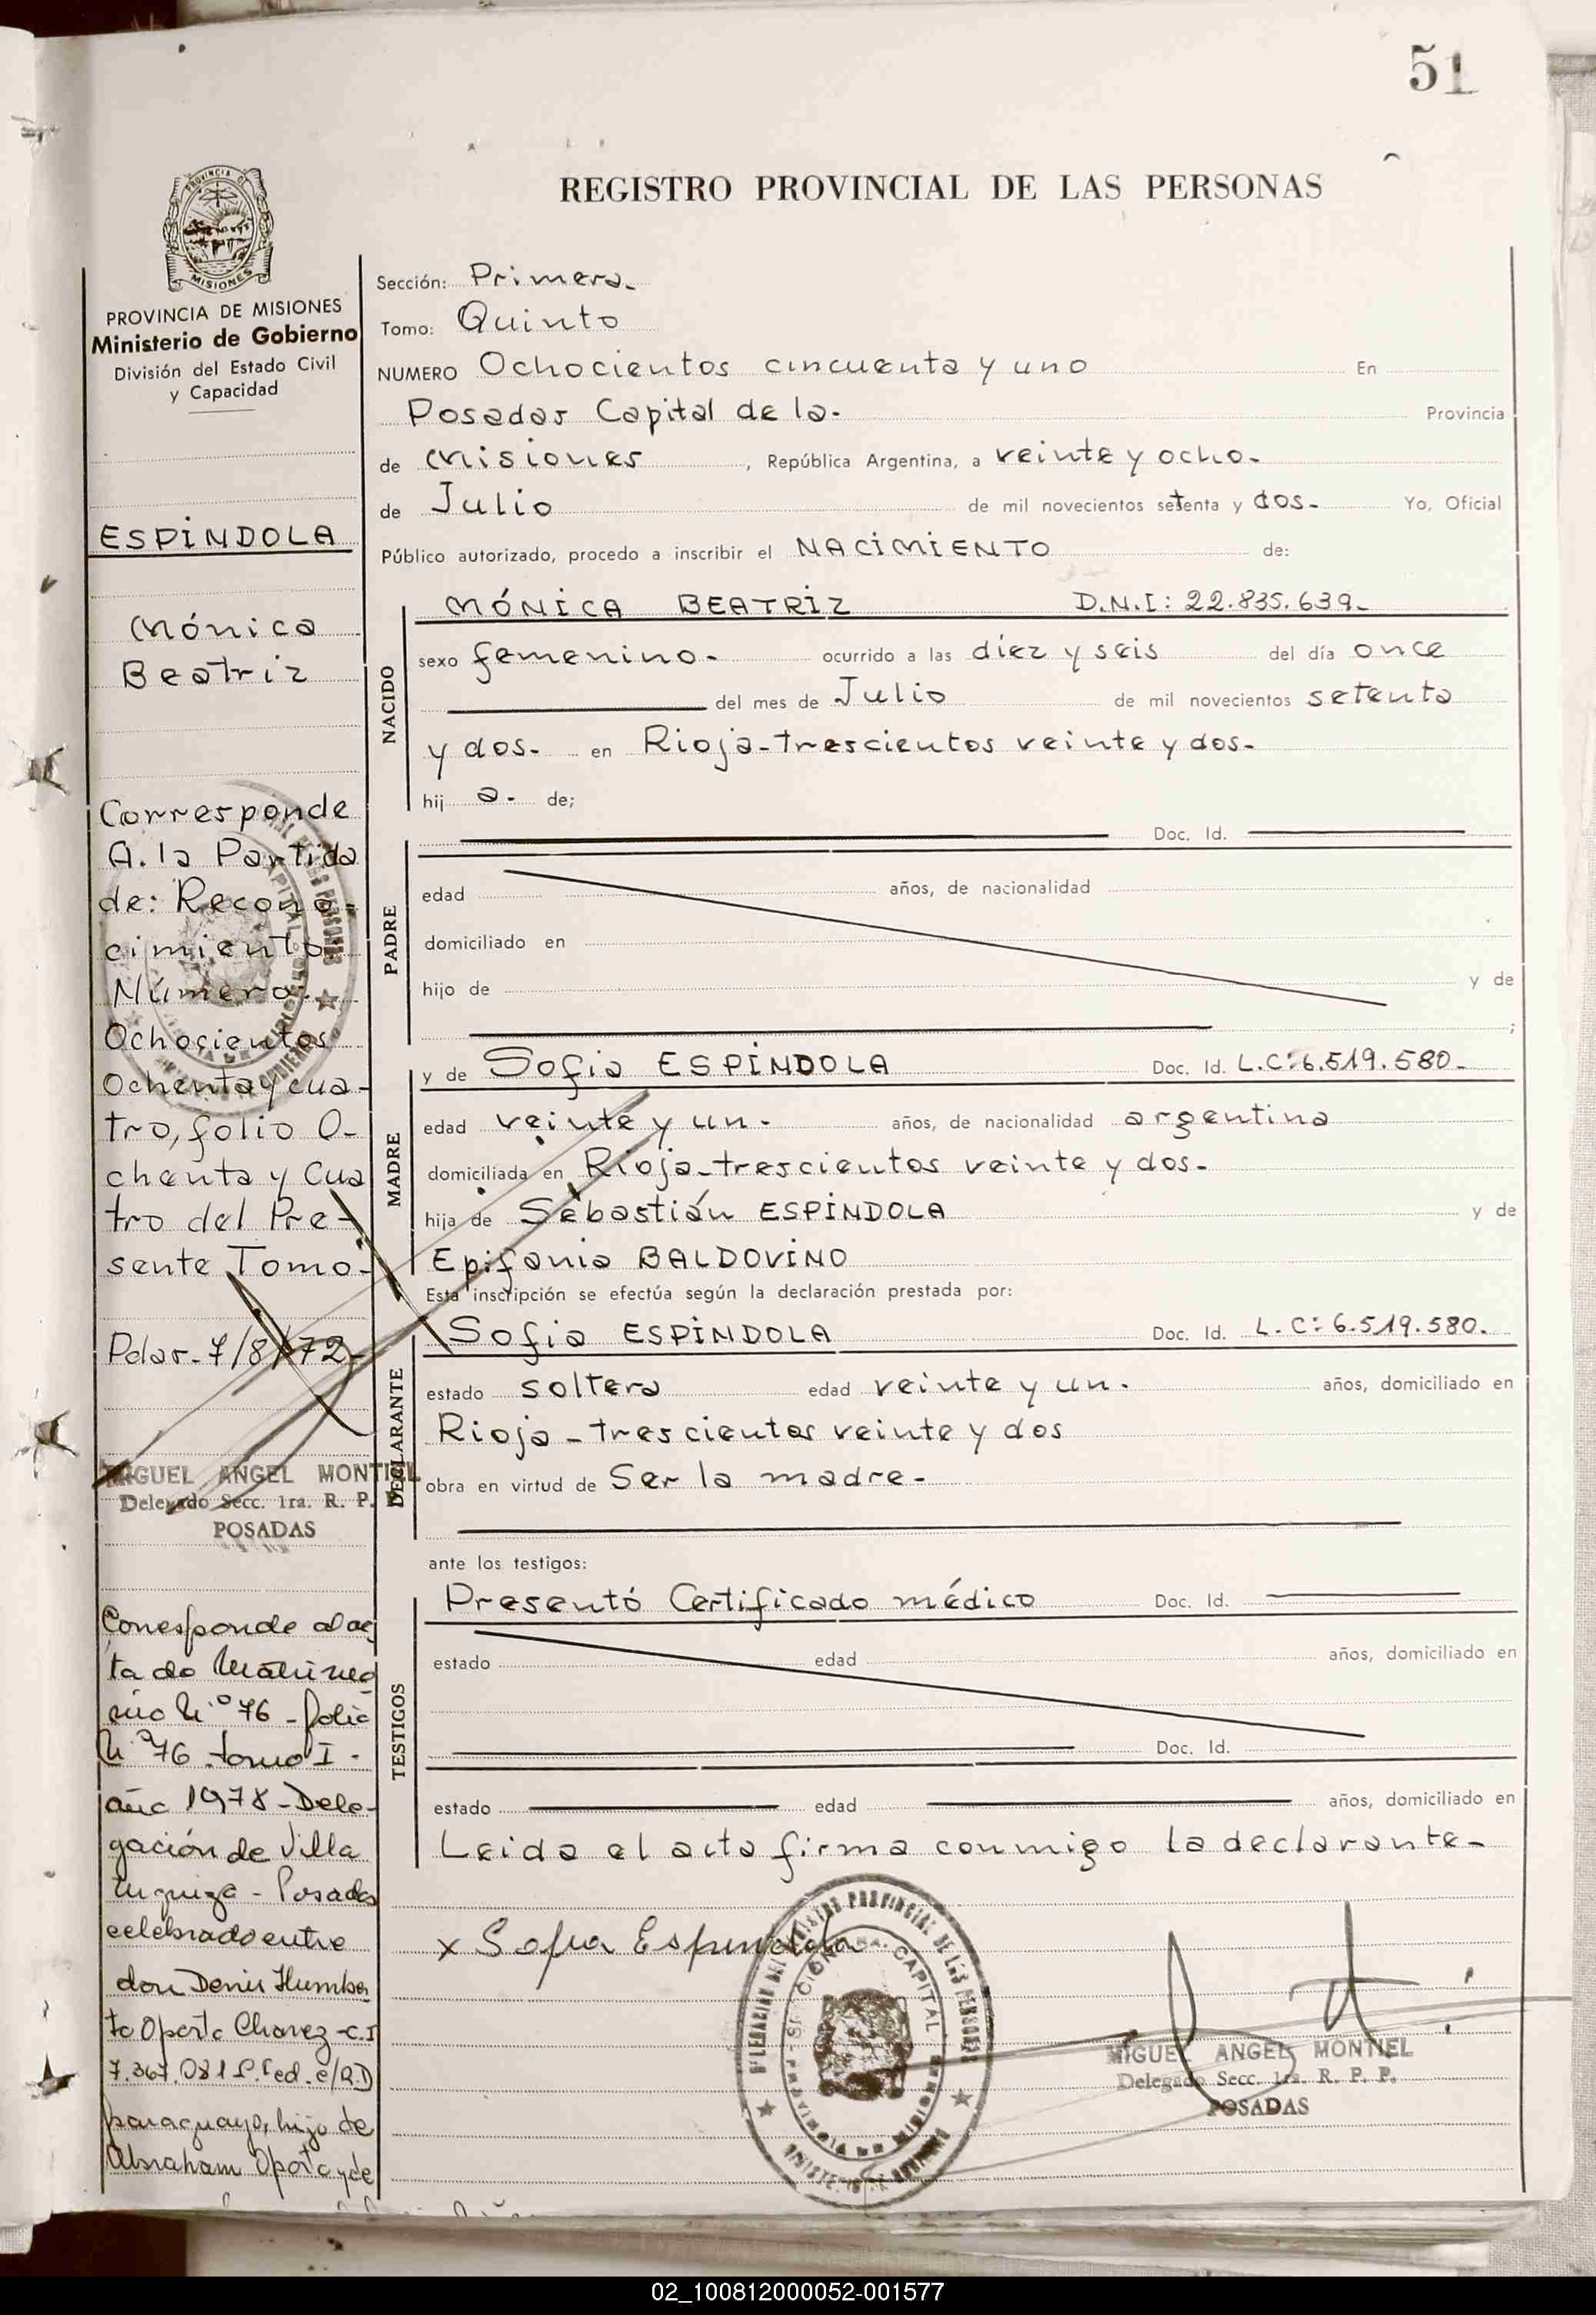 51
REGISTRO PROVINCIAL DE LAS PERSONAS
PROVINCIA DE MISIONES
Ministerio de Gobierno
División del Estado Civil
y Capacidad
ESPÍNDOLA
Mónica
Beatriz
Corresponde
A. la Partida
de: Recono=
cimiento
Número:
Ochocientos
Ochenta y cua-
tro, folio O-
chenta y Cua
tro del Pre-
sente Tomo.
Pdas. 7/8/72-
MIGUEL ANGEL MONTIEL
Delegado Secc. 1ra. R. P. P.
POSADAS
Corresponde al ac
ta de Matrimo
nio N.º 76 - folio
N.º 76 tomo I -
año 1978 - Dele-
gación de Villa
Urquiza - Posadas
celebrado entre
don Denis Humber
to Oporto Chavez - C.I
7.367.081 P. Fed. e/R.D
paraguayo, hijo de
Abraham Oporto y de
Sección: Primera.
Tomo: Quinto
NUMERO Ochocientos cincuenta y uno En
Posadas Capital de la. Provincia
de Misiones , República Argentina, a veinte y ocho.
de Julio de mil novecientos setenta y dos. Yo, Oficial
Público autorizado, procedo a inscribir el NACIMIENTO de:
NACIDO
MÓNICA BEATRÍZ D.N.I: 22.835.639.
sexo femenino. ocurrido a las diez y seis del día once
del mes de Julio de mil novecientos setenta
y dos. en Rioja - trescientos veinte y dos.
hij a. de;
PADRE
Doc. Id.
edad años, de nacionalidad
domiciliado en
hijo de y de
;
MADRE
y de Sofia ESPÍNDOLA Doc. Id. L.C: 6.519.580.
edad veinte y un. años, de nacionalidad argentina
domiciliada en Rioja - trescientos veinte y dos.
hija de Sebastián ESPÍNDOLA y de
Epifania BALDOVINO
Esta inscripción se efectúa según la declaración prestada por:
DECLARANTE
Sofia ESPÍNDOLA Doc. Id. L.C: 6.519.580.
estado soltera edad veinte y un. años, domiciliado en
Rioja - trescientos veinte y dos
obra en virtud de Ser la madre.
ante los testigos:
TESTIGOS
Presentó Certificado médico Doc. Id.
estado edad años, domiciliado en
Doc. Id.
estado edad años, domiciliado en
Leida el acta firma conmigo la declarante.
x Sofia Espindola
MIGUEL ANGEL MONTIEL
Delegado Secc. 1ra. R. P. P.
POSADAS
02_100812000052-001577